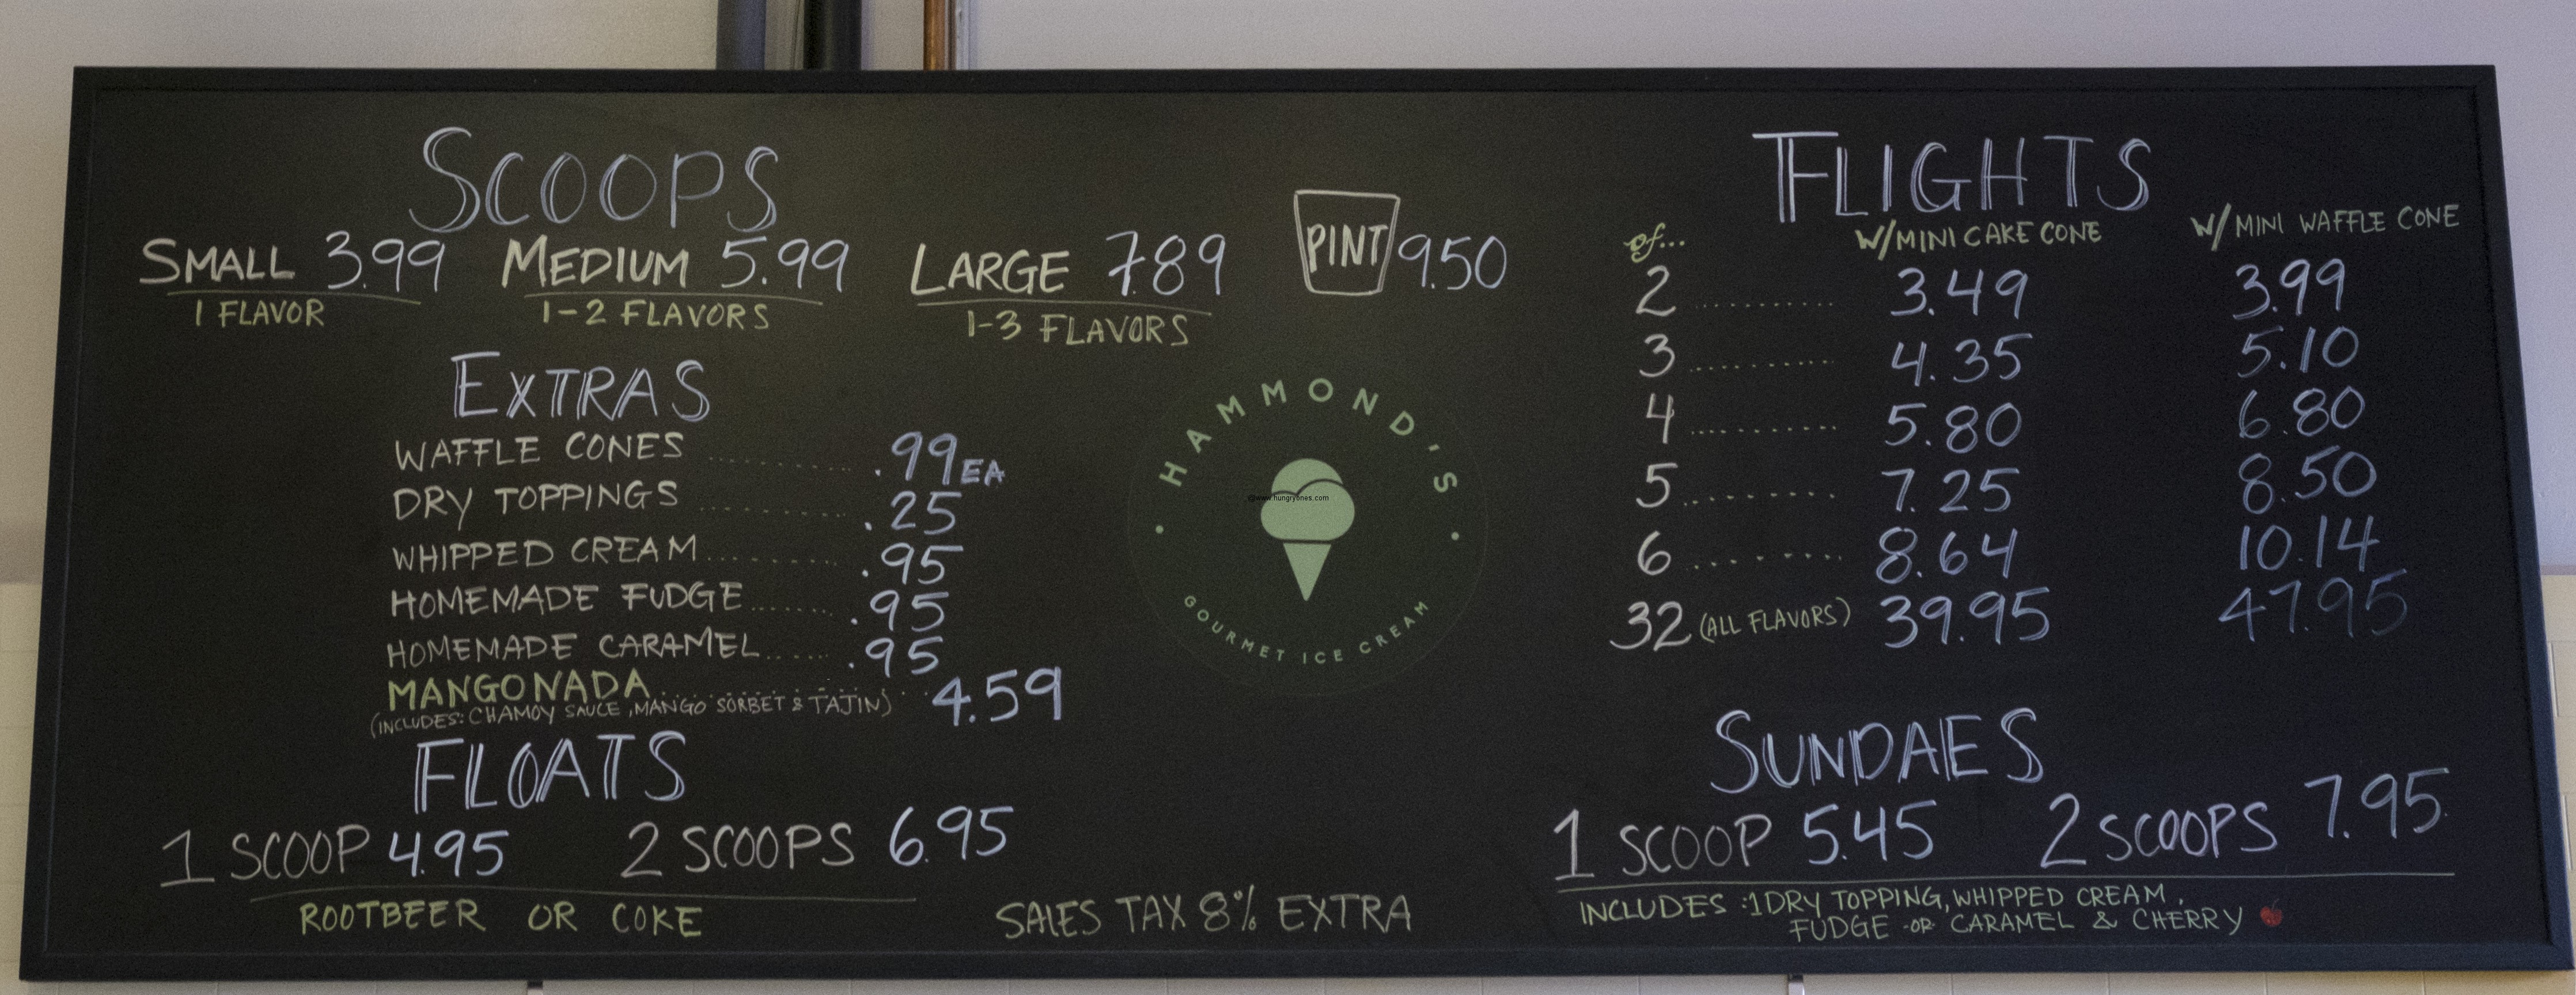 SCOOPS
SMALL 3.99 MEDIUM 5.99 LARGE 7.89 PINT 9.50
1 FLAVOR 1-2 FLAVORS 1-3 FLAVORS
EXTRAS
WAFFLE CONES .99 EA
DRY TOPPINGS .25
WHIPPED CREAM .95
HOMEMADE FUDGE .95
HOMEMADE CARAMEL .95
MANGONADA 4.59
(INCLUDES: CHAMOY SAUCE, MANGO SORBET & TAJIN)
FLOATS
1 SCOOP 4.95 2 SCOOPS 6.95
ROOTBEER OR COKE
HAMMOND'S
@www.hungryones.com
GOURMET ICE CREAM
SALES TAX 8% EXTRA
FLIGHTS
of... W/MINI CAKE CONE W/MINI WAFFLE CONE
2 3.49 3.99
3 4.35 5.10
4 5.80 6.80
5 7.25 8.50
6 8.64 10.14
32 (ALL FLAVORS) 39.95 47.95
SUNDAES
1 SCOOP 5.45 2 SCOOPS 7.95
INCLUDES: 1 DRY TOPPING, WHIPPED CREAM,
FUDGE -OR- CARAMEL & CHERRY